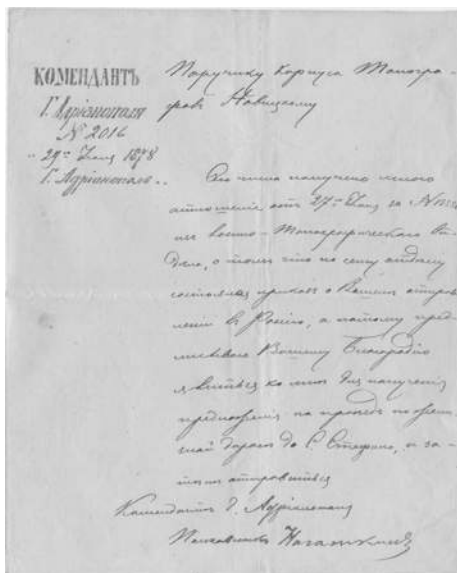 КОМЕНДАНТЪ
Г. Адріанополя
№ 2016
"29" Іюня 1878
Г. Адріанополь.
Поручику Корпуса Топогра-
фовъ Новицкому
Сего числа получено мною
отношеніе отъ 27го Іюня за №
изъ военно-Топографическаго От-
дѣла, о томъ что по сему отделу
состоялся приказъ о Вашемъ отправ-
леніи въ Россію, а потому пред-
писываю Вашему Благородію
явиться ко мнѣ для полученія
предложенія на проѣздъ по желѣз-
ной дорогѣ до С. Стефано, и за-
тѣмъ отправиться
Комендантъ г. Адріанополя
Полковникъ